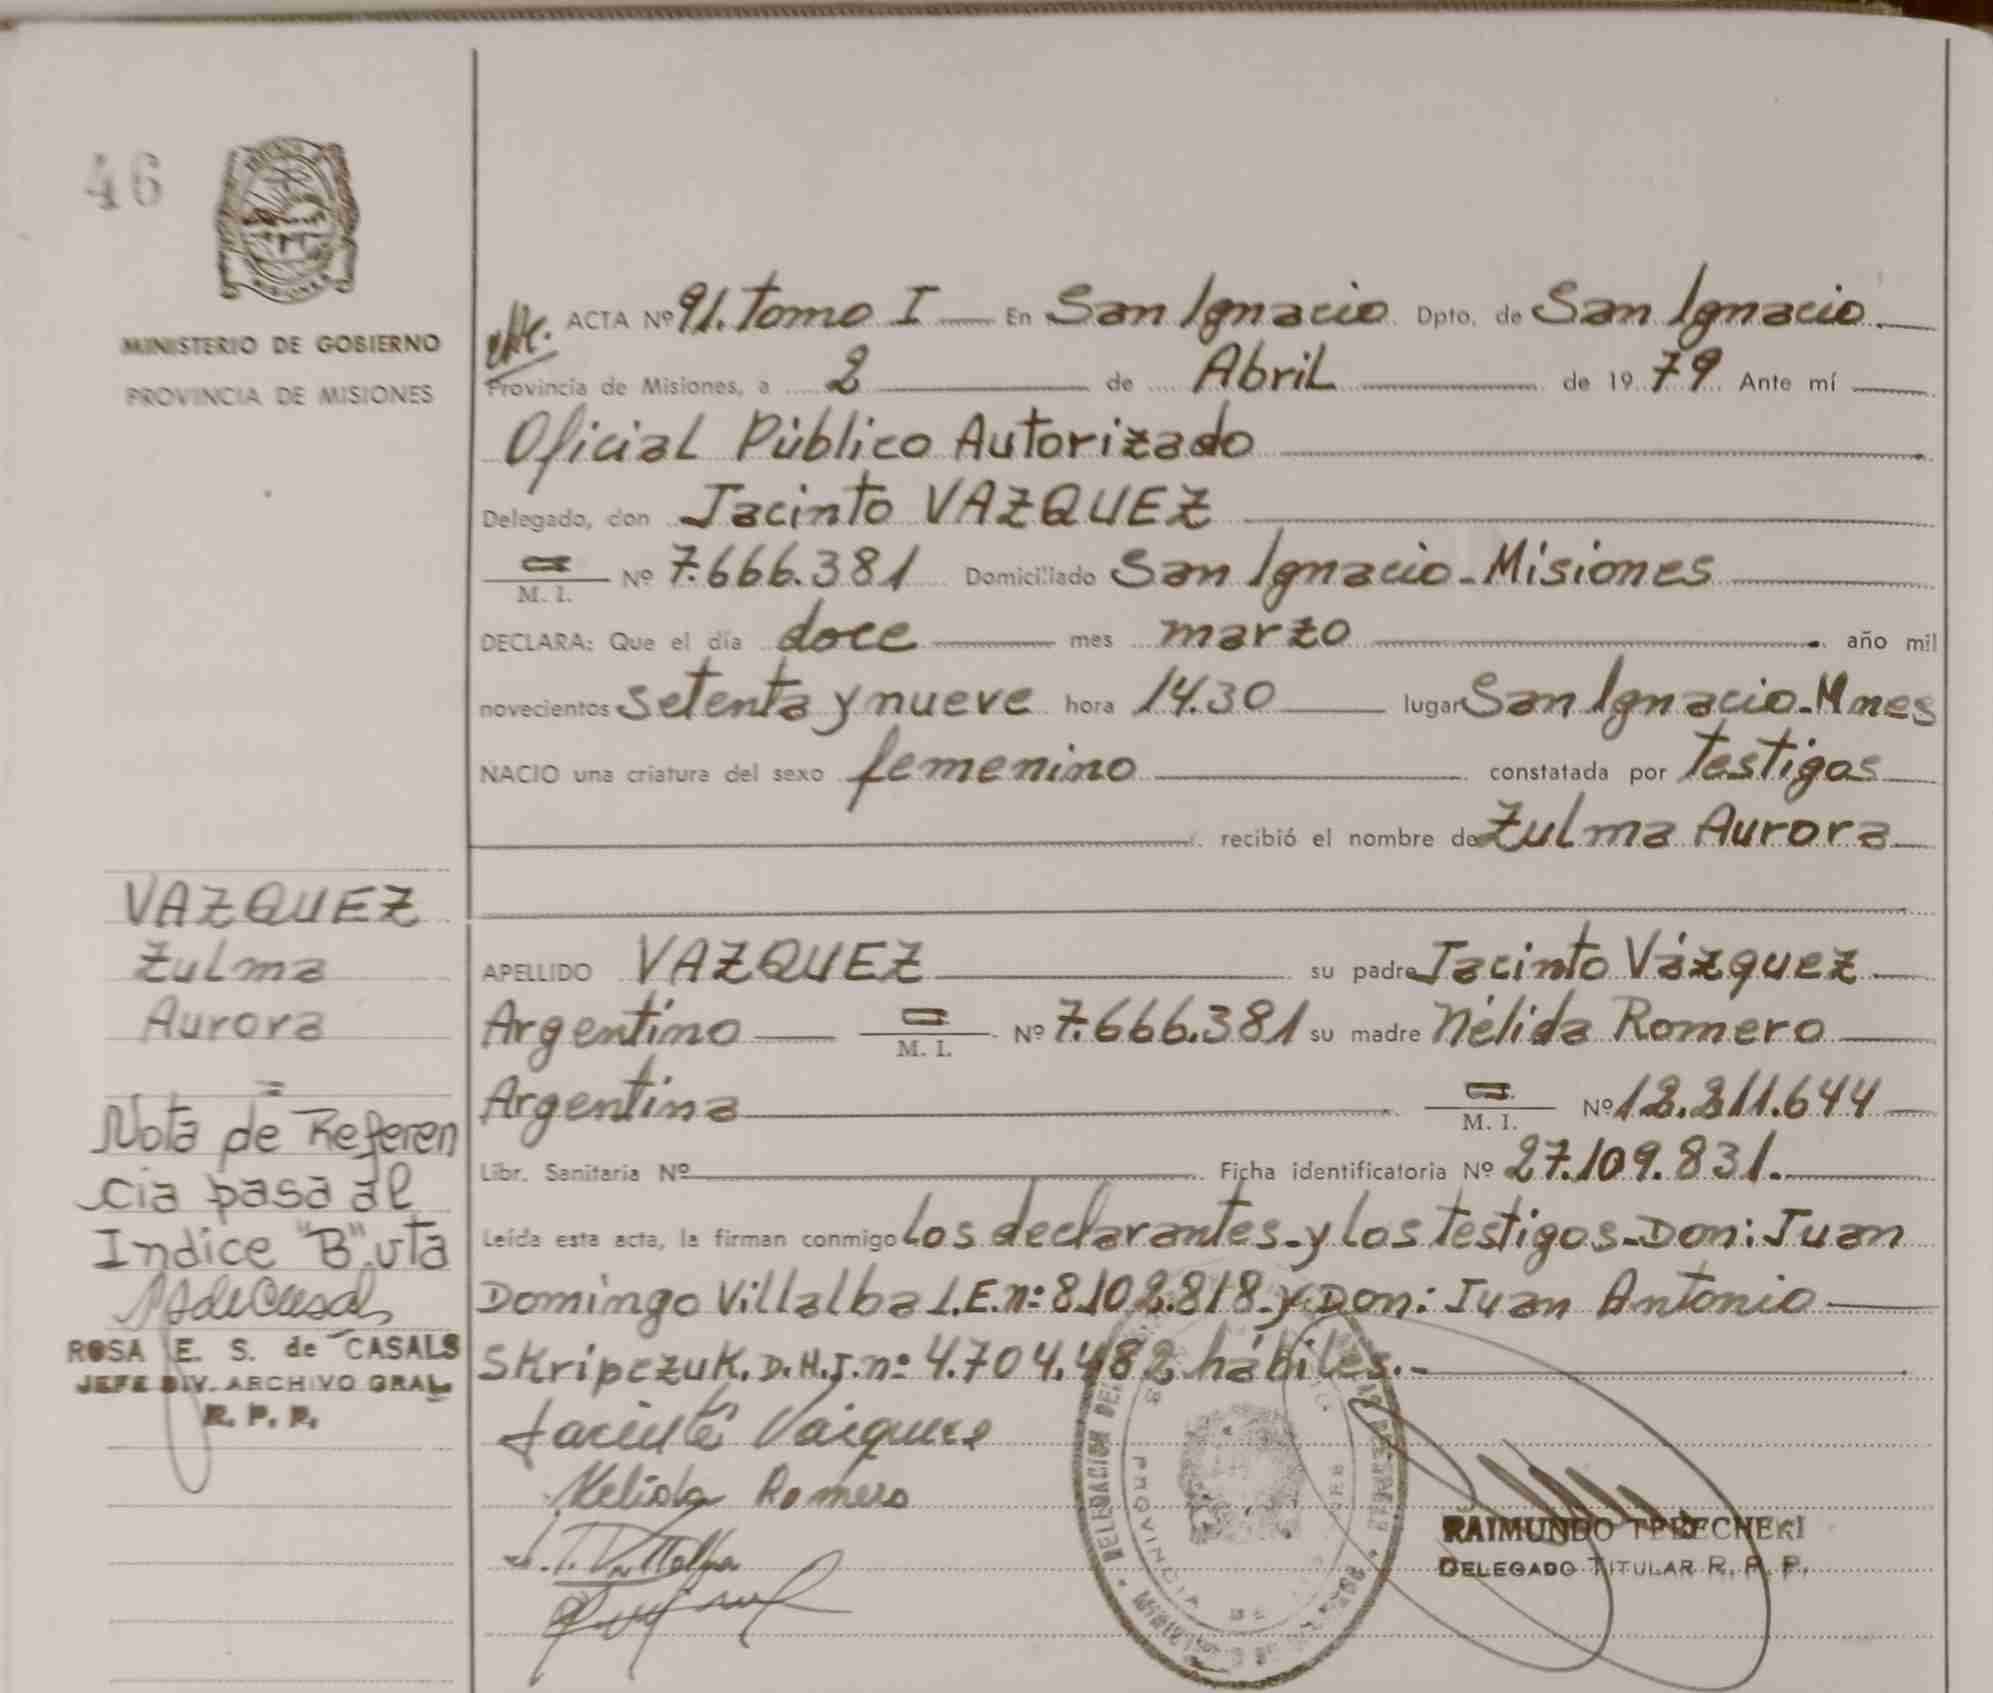 46
MISIONES
MINISTERIO DE GOBIERNO
PROVINCIA DE MISIONES
ACTA Nº 91. Tomo I En San Ignacio Dpto. de San Ignacio
Provincia de Misiones, a 2 de Abril de 1979 Ante mí
Oficial Público Autorizado
Delegado, don Jacinto VAZQUEZ
M. I. Nº 7.666.381 Domiciliado San Ignacio - Misiones
DECLARA: Que el día doce mes marzo año mil
novecientos setenta y nueve hora 14.30 lugar San Ignacio - Mnes
NACIO una criatura del sexo femenino constatada por testigos
recibió el nombre de Zulma Aurora
VAZQUEZ
Zulma
Aurora
APELLIDO VAZQUEZ su padre Jacinto Vázquez
Argentino M. I. Nº 7.666.381 su madre Nélida Romero
Argentina M. I. Nº 12.211.644
Libr. Sanitaria Nº Ficha identificatoria Nº 27.109.831.
Leída esta acta, la firman conmigo los declarantes - y los testigos - Don: Juan
Domingo Villalba L.E.nº: 8.102.818 - y Don: Juan Antonio
Skripczuk. D.N.I. nº 4.704.482 hábiles.-
Nota de Referen
cia pasa al
Indice "B" vta
ROSA E. S. de CASALS
JEFE DIV. ARCHIVO GRAL.
R. P. P.
Jacinto Vazquez
Nelida Romero
Villalba
DELEGACION DEL
PROVINCIA DE
RAIMUNDO TERECHEKI
DELEGADO TITULAR R. P. P.